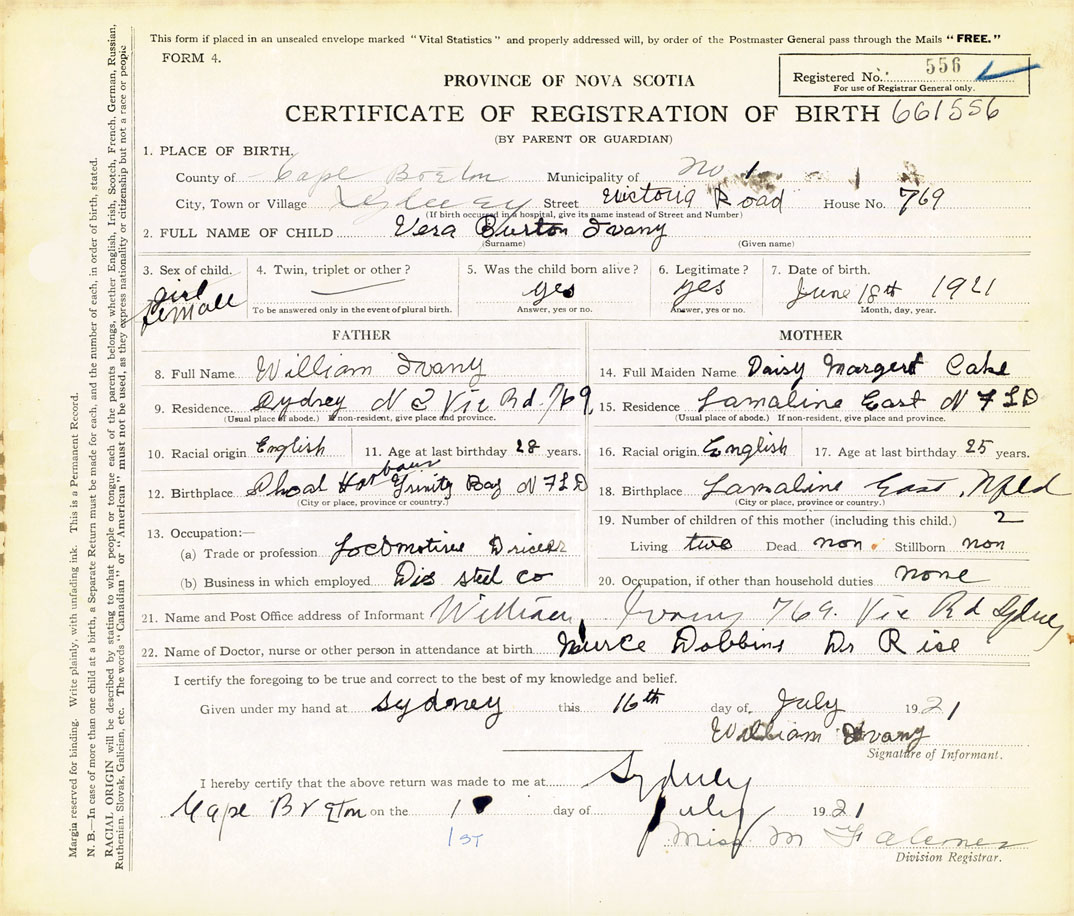 This form if placed in an unsealed envelope marked "Vital Statistics" and properly addressed will, by order of the Postmaster General pass through the Mails "FREE."
FORM 4.
Registered No. 556
For use of Registrar General only.
PROVINCE OF NOVA SCOTIA
CERTIFICATE OF REGISTRATION OF BIRTH 661556
(BY PARENT OR GUARDIAN)
1. PLACE OF BIRTH.
County of Cape Breton Municipality of No 1
City, Town or Village Sydney Street Victoria Road House No. 769
(If birth occurred in a hospital, give its name instead of Street and Number)
2. FULL NAME OF CHILD Vera Burton Ivany
(Surname) (Given name)
3. Sex of child. girl female
4. Twin, triplet or other? —
To be answered only in the event of plural birth.
5. Was the child born alive? yes
Answer, yes or no.
6. Legitimate? yes
Answer, yes or no.
7. Date of birth. June 18th 1921
Month, day, year.
FATHER
8. Full Name William Ivany
9. Residence Sydney N S Vic Rd. 769
(Usual place of abode.) If non-resident, give place and province.
10. Racial origin English 11. Age at last birthday 28 years.
12. Birthplace Shoal Harbour Trinity Bay N F L D
(City or place, province or country.)
13. Occupation:—
(a) Trade or profession Locomotive Driver
(b) Business in which employed Dis steel co
MOTHER
14. Full Maiden Name Daisy Margert Cake
15. Residence Lamaline East N F L D
(Usual place of abode.) If non-resident, give place and province.
16. Racial origin English 17. Age at last birthday 25 years.
18. Birthplace Lamaline East, Nfld
(City or place, province or country.)
19. Number of children of this mother (including this child.) 2
Living two Dead non Stillborn non
20. Occupation, if other than household duties none
21. Name and Post Office address of Informant William Ivany 769. Vic Rd Sydney
22. Name of Doctor, nurse or other person in attendance at birth Nurce Dobbins Dr Rise
I certify the foregoing to be true and correct to the best of my knowledge and belief.
Given under my hand at Sydney this 16th day of July 1921
William Ivany
Signature of Informant.
I hereby certify that the above return was made to me at Sydney
Cape Breton on the 1 day of July 1921
1ST
Miss M
Division Registrar.
Margin reserved for binding. Write plainly, with unfading ink. This is a Permanent Record.
N. B.—In case of more than one child at a birth, a Separate Return must be made for each, and the number of each, in order of birth, stated.
RACIAL ORIGIN will be described by stating to what people or tongue each of the parents belongs, whether English, Irish, Scotch, French, German, Russian,
Ruthenian, Slovak, Galician, etc. The words "Canadian" or "American" must not be used, as they express nationality or citizenship but not a race or people